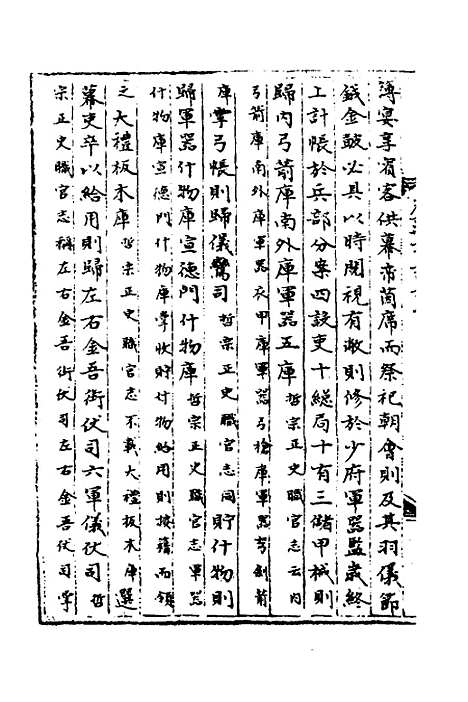 簿宴享賓客供幕帟茵席而祭祀朝會則及其羽儀節
鉞金鼓必具以時閱視有敝則修於少府軍器監歲終
上計帳於兵部分案四設吏十總局十有三儲甲械則
歸內弓箭庫南外庫軍器五庫哲宗正史職官志云內
弓箭庫南外庫軍器衣甲庫軍器弓槍庫軍器弩劍箭
庫掌弓帳則歸儀鸞司哲宗正史職官志同貯什物則
歸軍器什物庫宣德門什物庫哲宗正史職官志軍器
什物庫宣德門什物庫掌收貯什物給用則按籍而領
之大禮板木庫哲宗正史職官志不載大禮板木庫選
募吏卒以給用則歸左右金吾街仗司六軍儀仗司哲
宗正史職官志稱左右金吾街仗司左右金吾仗司掌